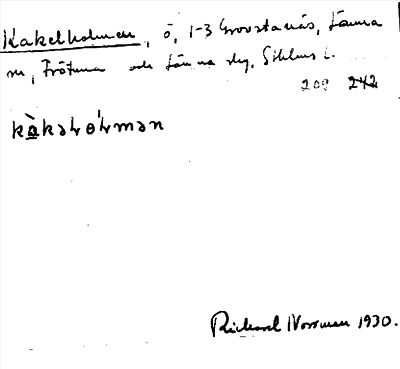 Kakelholmen, ö, 1-3 Grovstanäs, Länna
sn, Frötuna och Länna skg, Sthlms l.
209 242
kàkəłɵ̀łmən
Rickard Norrman 1930.